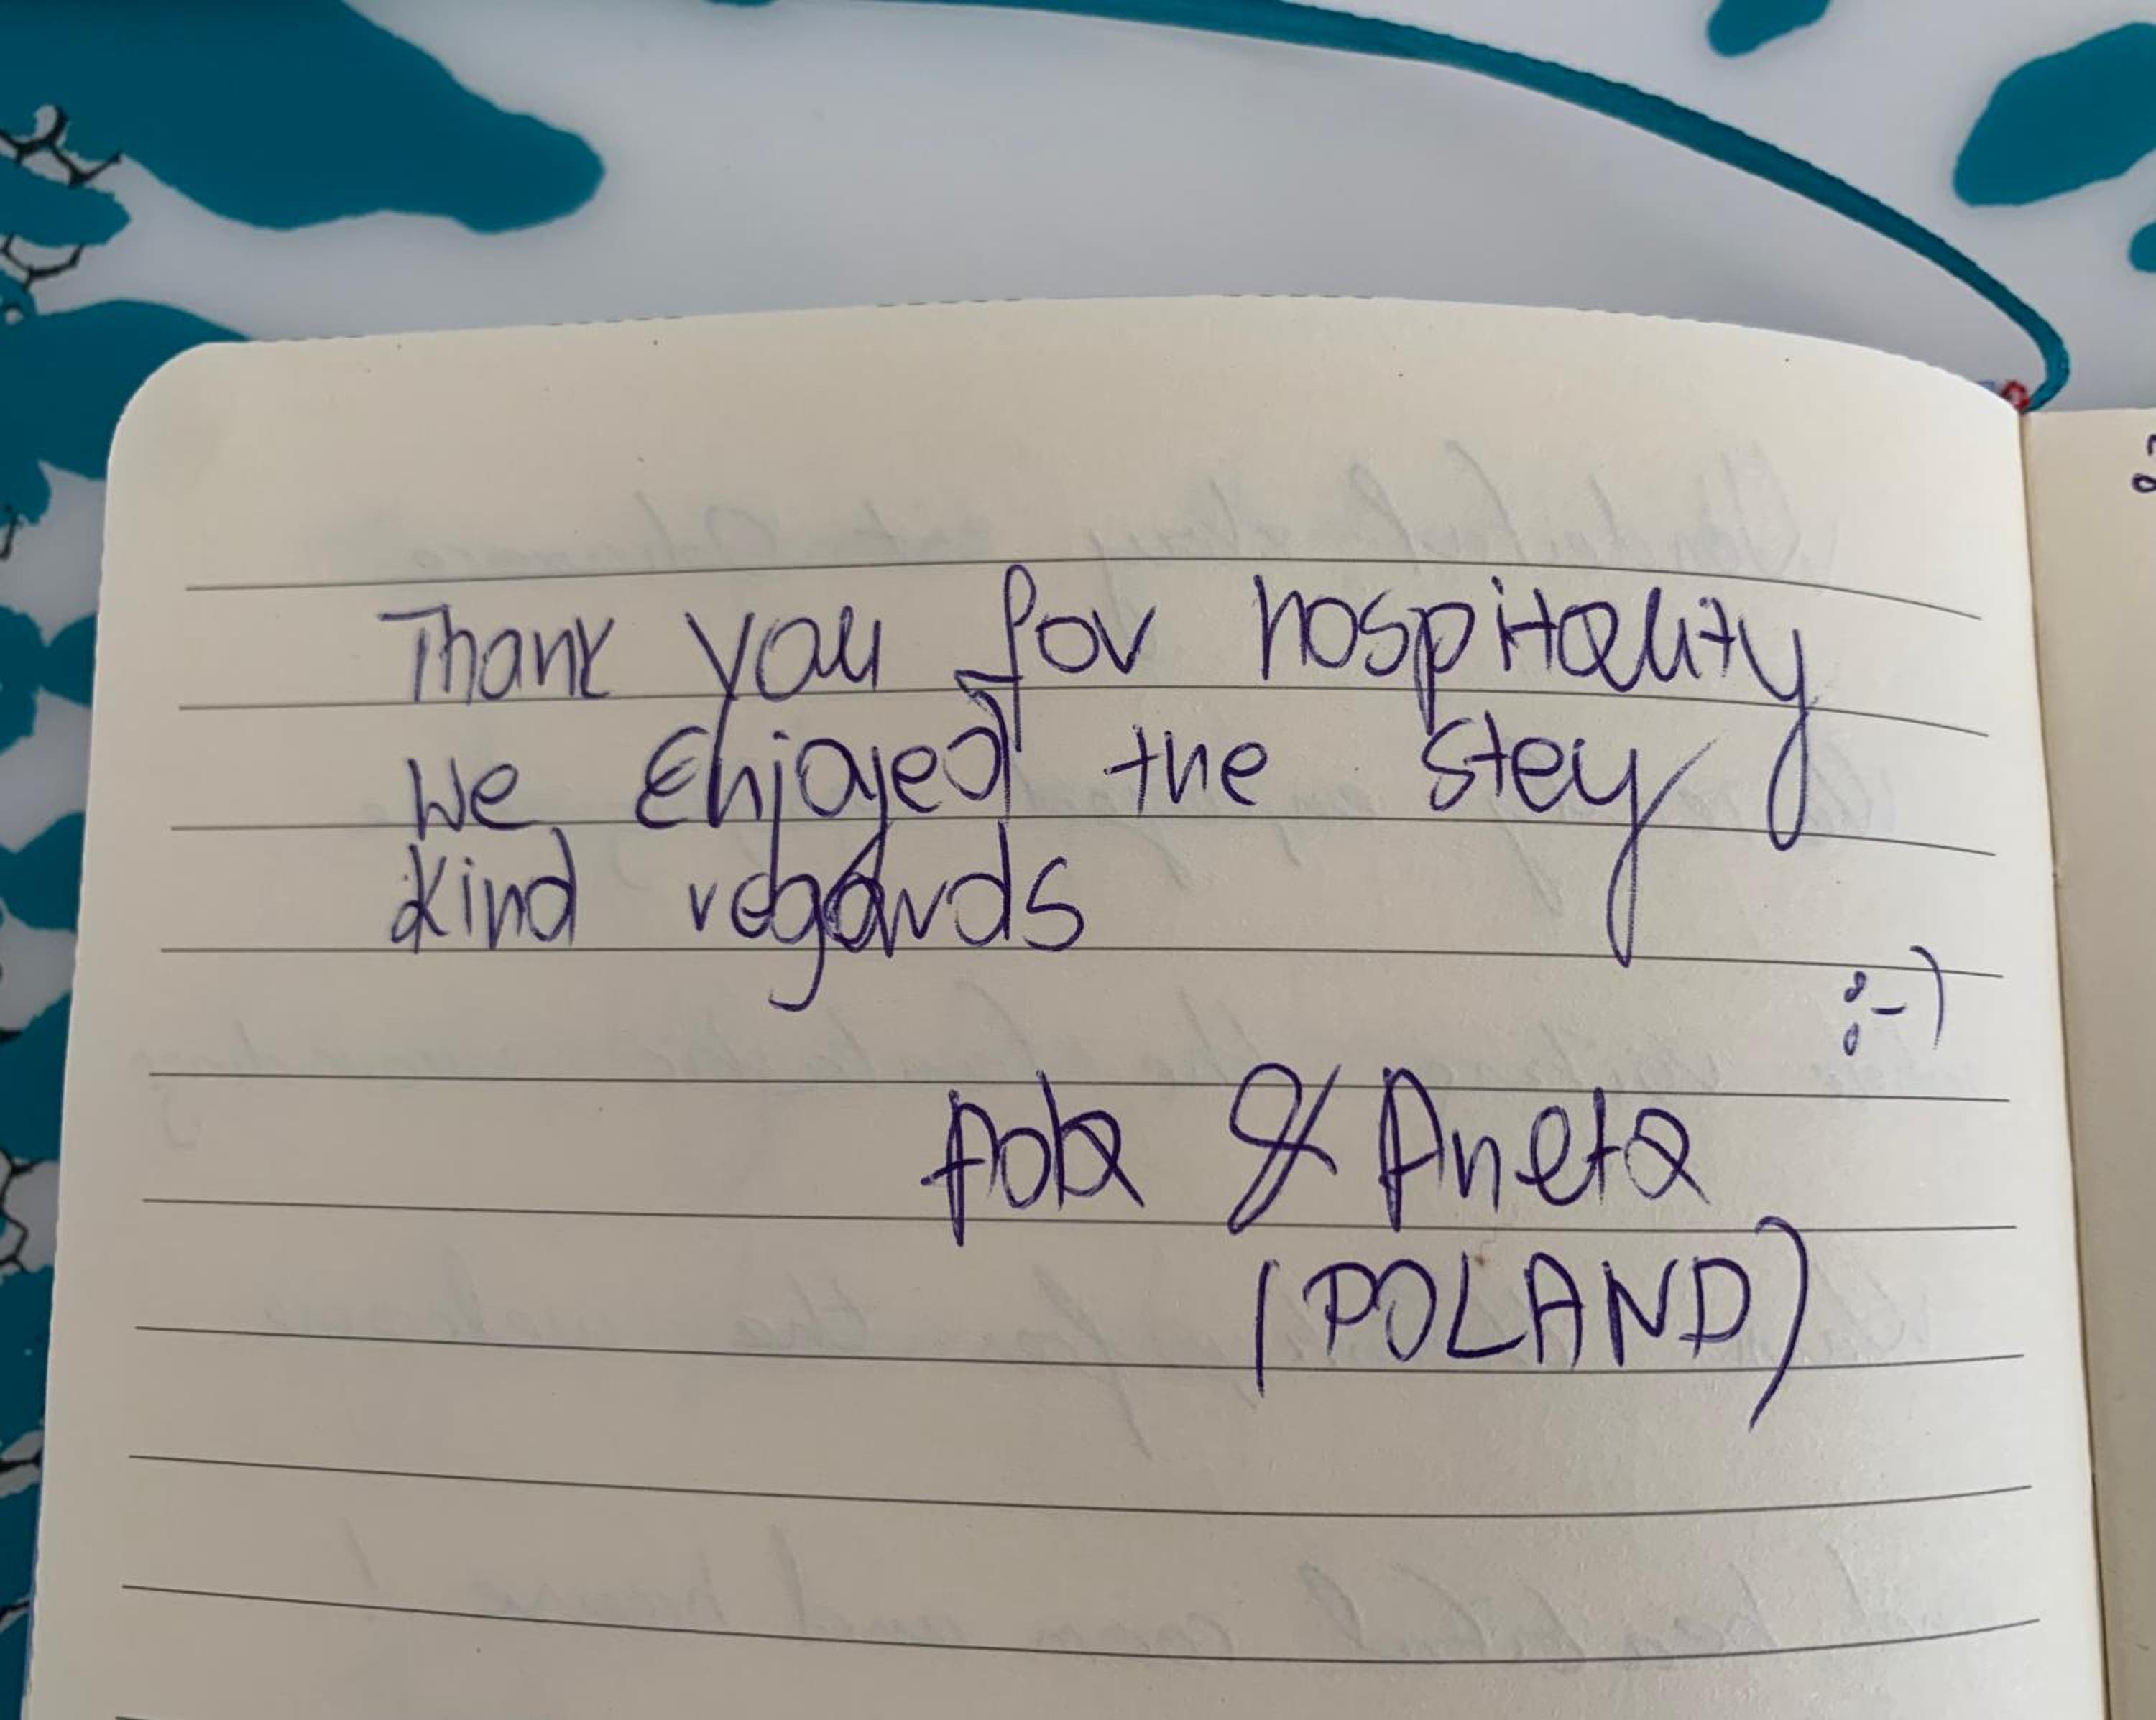 Thank you for hospitality
We Enjoyed the stey
Kind regards
:-)
& Aneta
(POLAND)